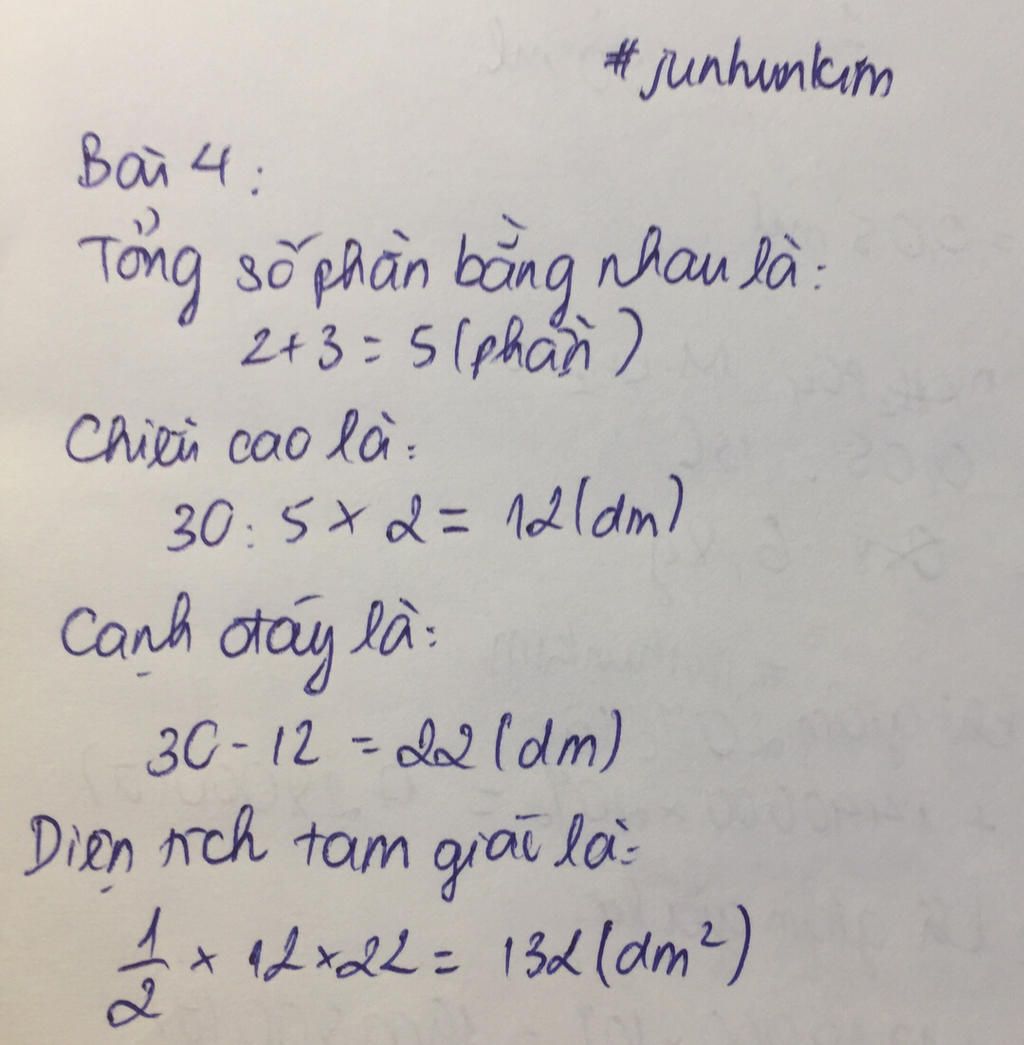 #junhunkim
Bài 4:
Tổng số phần bằng nhau là:
2+3 = 5 (phần)
Chiều cao là:
30 : 5 × 2 = 12 (dm)
Cạnh đáy là:
30 - 12 = 22 (dm)
Diện tích tam giác là:
1/2 × 12 × 22 = 132 (dm²)